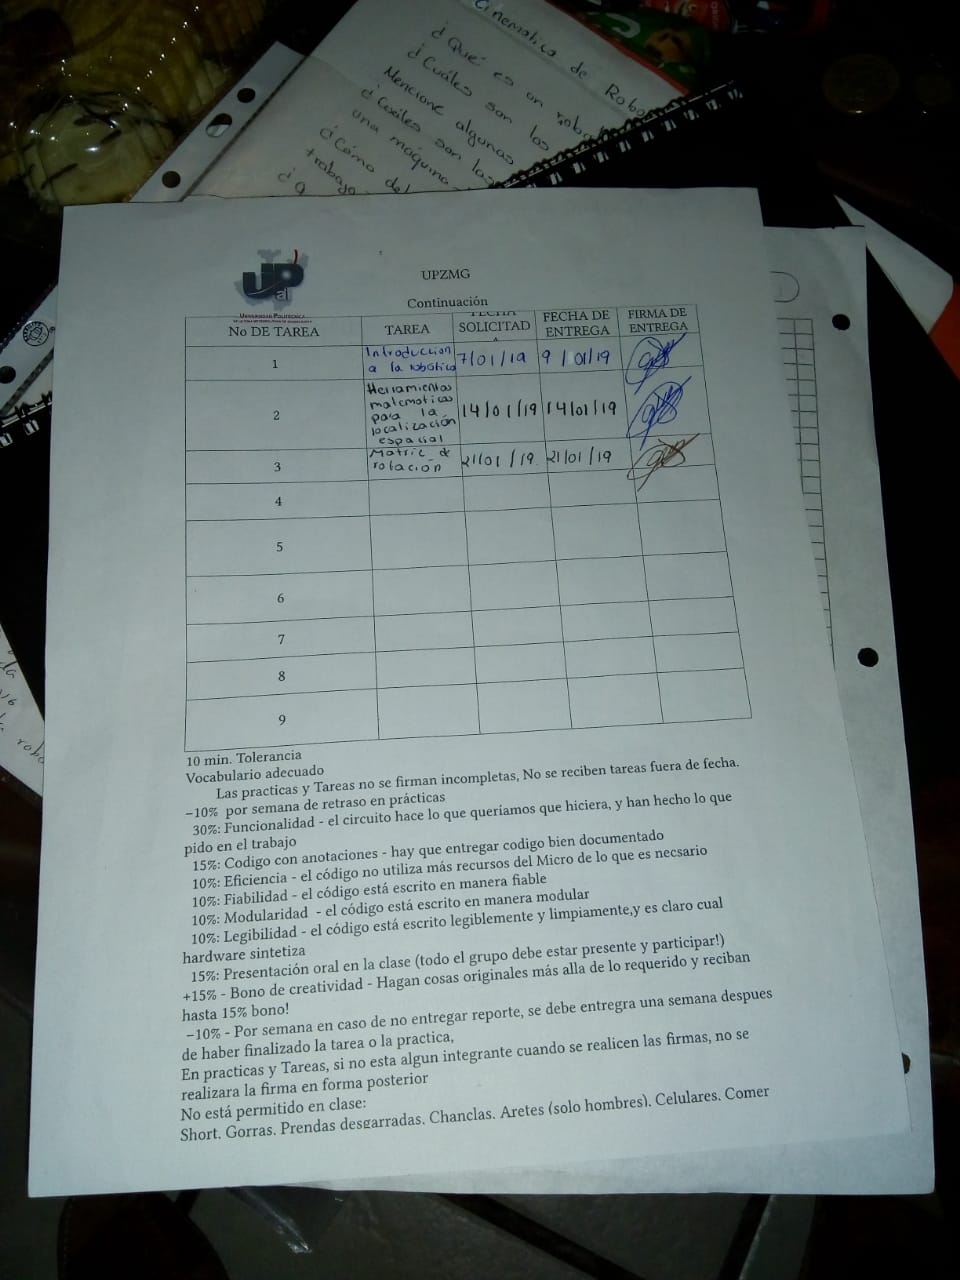 Cinematica de Robo
¿Qué es un robo
¿Cuáles son los
Mencione algunas
¿Cuáles son las
una máquina
¿Cómo de
trabajo
UPZMG
Continuación
UNIVERSIDAD POLITÉCNICA
No DE TAREA TAREA FECHA SOLICITAD FECHA DE ENTREGA FIRMA DE ENTREGA
1 Introduccion a la robótica 7/01/19 9/01/19
2 Herramientas matematicas para la localización espacial 14/01/19 14/01/19
3 Matriz de rotación 21/01/19 21/01/19
4
5
6
7
8
9
10 min. Tolerancia
Vocabulario adecuado
Las practicas y Tareas no se firman incompletas, No se reciben tareas fuera de fecha.
–10% por semana de retraso en prácticas
30%: Funcionalidad - el circuito hace lo que queríamos que hiciera, y han hecho lo que
pido en el trabajo
15%: Codigo con anotaciones - hay que entregar codigo bien documentado
10%: Eficiencia - el código no utiliza más recursos del Micro de lo que es necsario
10%: Fiabilidad - el código está escrito en manera fiable
10%: Modularidad - el código está escrito en manera modular
10%: Legibilidad - el código está escrito legiblemente y limpiamente,y es claro cual
hardware sintetiza
15%: Presentación oral en la clase (todo el grupo debe estar presente y participar!)
+15% - Bono de creatividad - Hagan cosas originales más alla de lo requerido y reciban
hasta 15% bono!
–10% - Por semana en caso de no entregar reporte, se debe entregra una semana despues
de haber finalizado la tarea o la practica,
En practicas y Tareas, si no esta algun integrante cuando se realicen las firmas, no se
realizara la firma en forma posterior
No está permitido en clase:
Short, Gorras, Prendas desgarradas, Chanclas, Aretes (solo hombres), Celulares, Comer